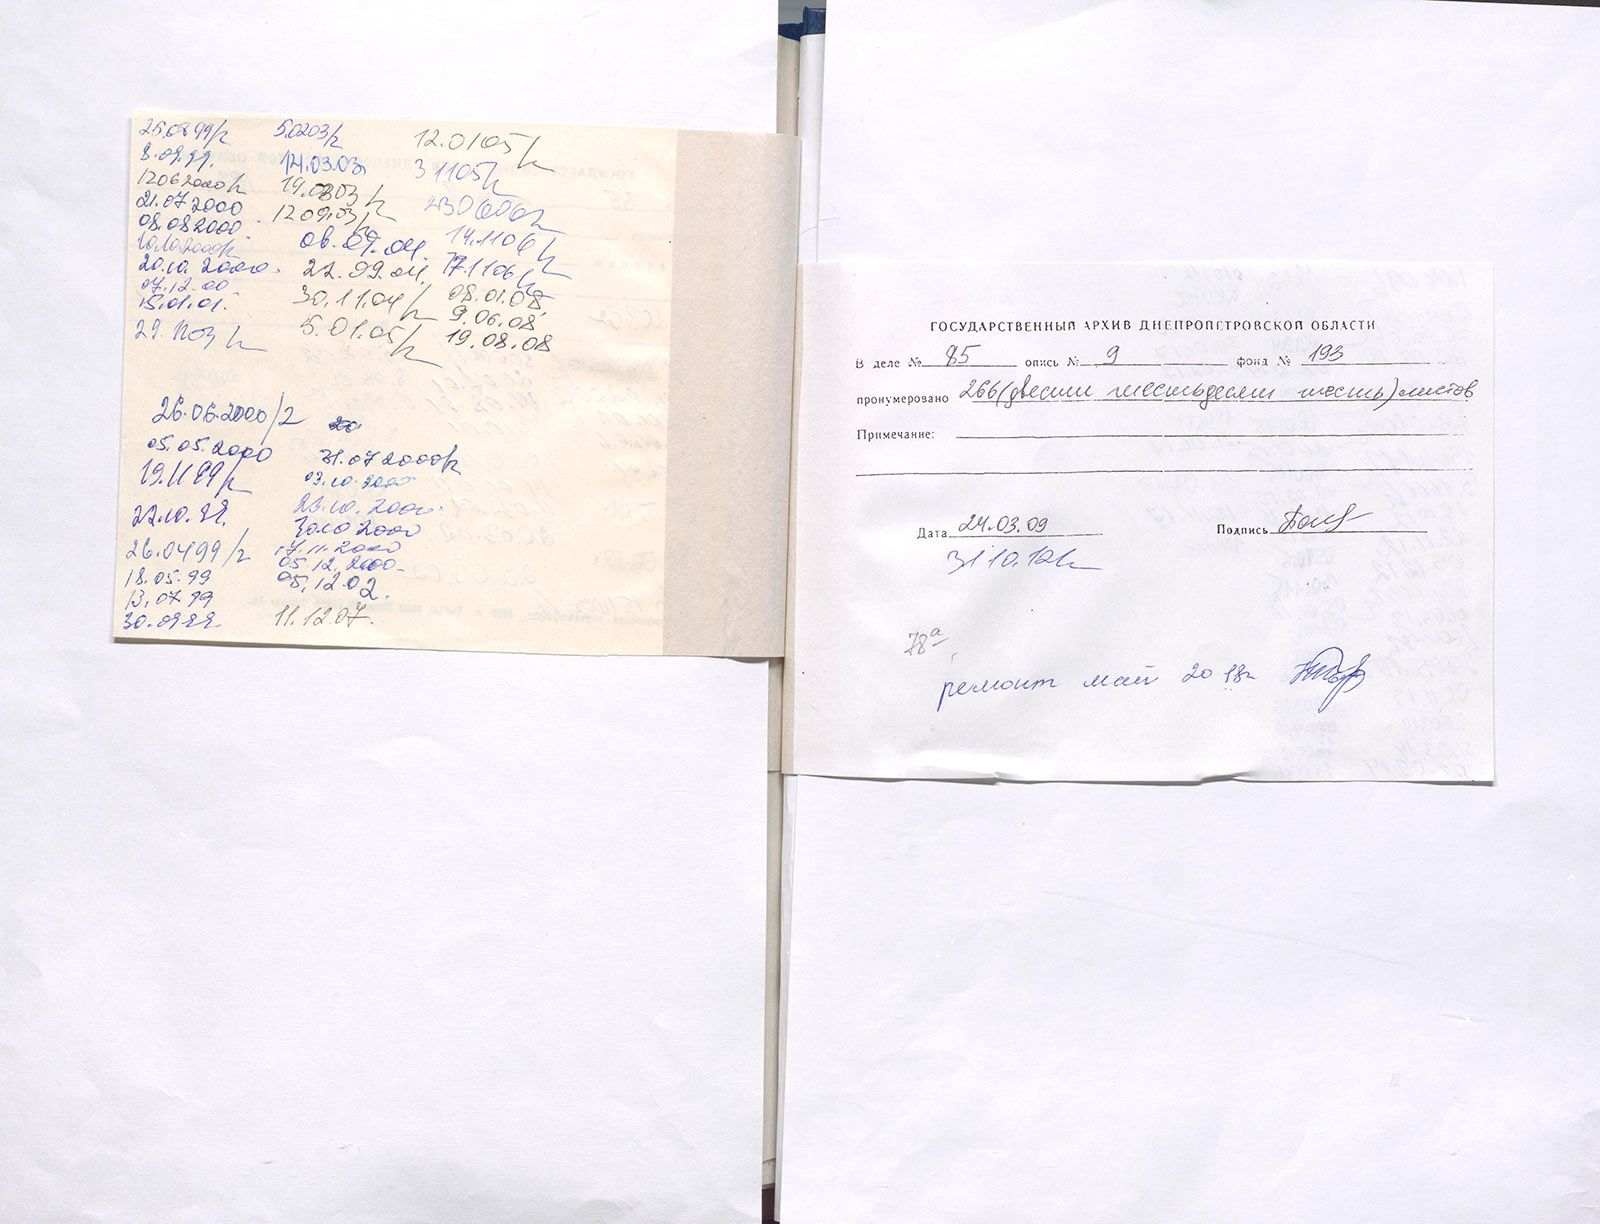 25.08.99
8.09.99.
12062000
21.07 2000
08.08 2000
20.10. 2000.
07.12.00
15.01.01.
5.0203
14.03.03
19.0803
1209.03
06.09.04.
22.09.04.
30.11.04
5.01.05
12.0105
31105
230606
14.1106
17.1106
08.01.08,
9.06.08,
19.08.08
26.06.2000
05.05.2000
19.1199
22.10.99.
26.0499
18.05.99
13.07 99
30.0999
31.07 2000
03.10.2000
23.10.2000.
30.10 2000
17.11.2000
05.12.2000
05.12.02.
11.12.07.
ГОСУДАРСТВЕННЫЙ АРХИВ ДНЕПРОПЕТРОВСКОЙ ОБЛАСТИ
В деле № 85 опись № 9 фонд № 193
пронумеровано 266 (двести шестьдесят шесть) листов
Примечание:
Дата 24.03.09 Подпись
31 10.12
78а
ремонт май 2018г